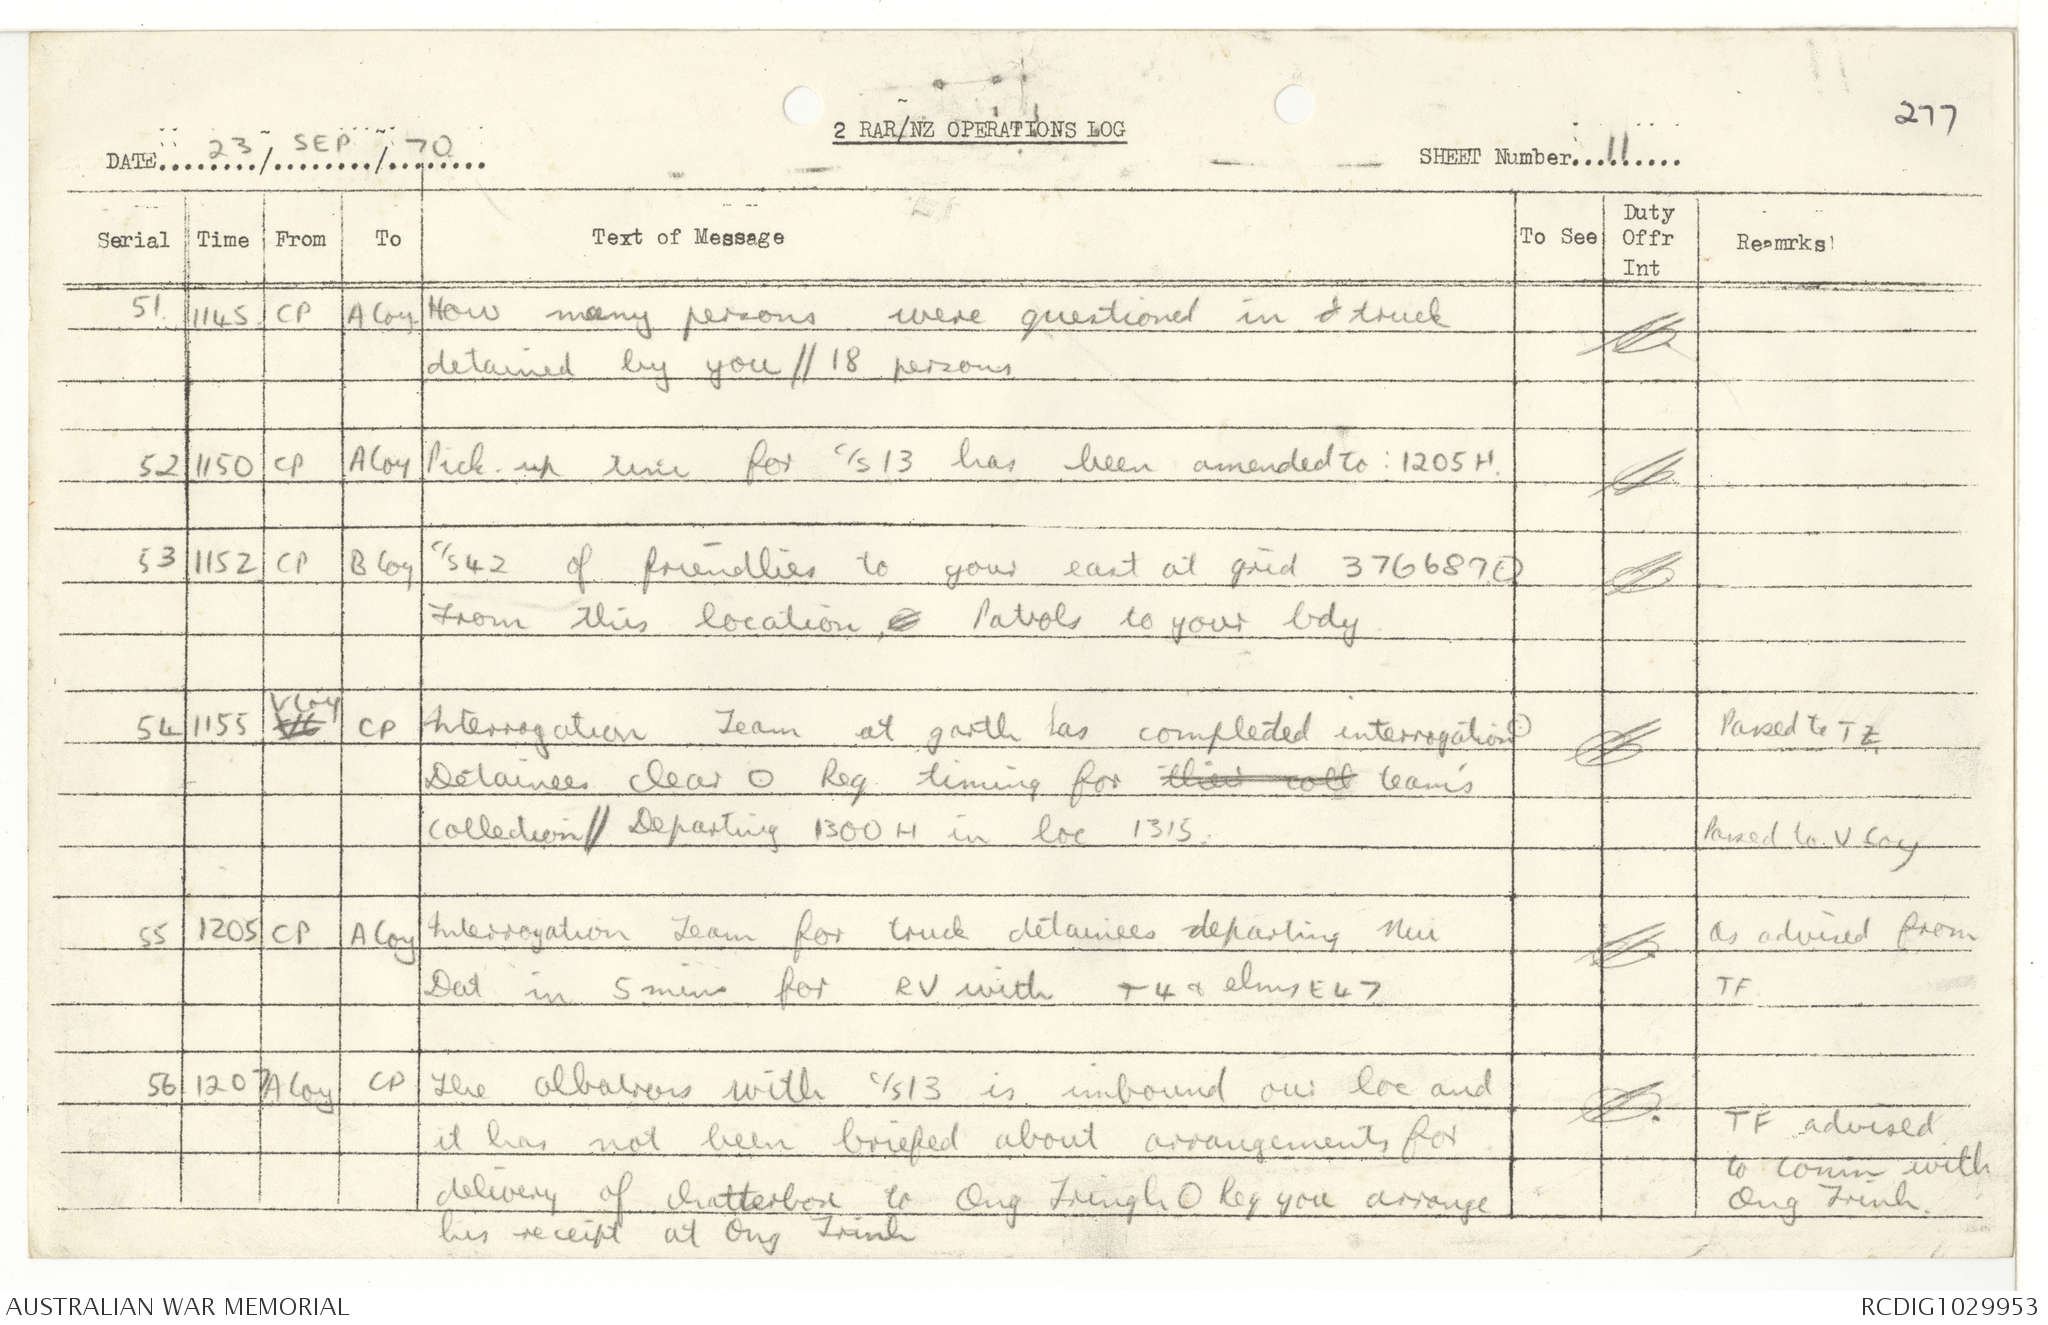 277
2 RAR/NZ OPERATIONS LOG
DATE 23/SEP/70
SHEET Number 11
Serial Time From To Text of Message To See Duty Offr Int Reamrks
51. 1145 CP A Coy How many persons were questioned in truck
detained by you // 18 persons
52 1150 CP A Coy Pick-up time for C/S 13 has been amended to: 1205H.
53 1152 CP B Coy C/S 42 of friendlies to your east at grid 376687 O
From this location, Patrols to your bdy
54 1155 V Coy CP Interrogation Team at garth has completed interrogation O Passed to TF
Detainees clear O Req timing for their coll team's
collection // Departing 1300H in loc 1315. Passed to V Coy
55 1205 CP A Coy Interrogation Team for truck detainees departing Nui As advised from
Dat in 5 mins for RV with T4 & elms E47 TF
56 1207 A Coy CP The albatross with C/S 13 is inbound our loc and
it has not been briefed about arrangements for TF advised
delivery of chatterbox to Ong Tringh O Req you arrange to comm with
his receipt at Ong Trinh Ong Trinh.
AUSTRALIAN WAR MEMORIAL
RCDIG1029953